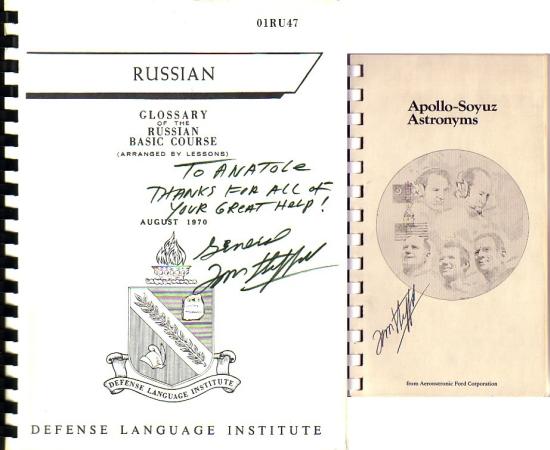 01RU47
RUSSIAN
GLOSSARY
OF THE
RUSSIAN
BASIC COURSE
(ARRANGED BY LESSONS)
TO ANATOLE
THANKS FOR ALL OF
YOUR GREAT HELP!
AUGUST 1970
General
Tom Stafford
DEFENSE LANGUAGE INSTITUTE
DEFENSE LANGUAGE INSTITUTE
Apollo-Soyuz
Astronyms
Tom Stafford
from Aeronutronic Ford Corporation